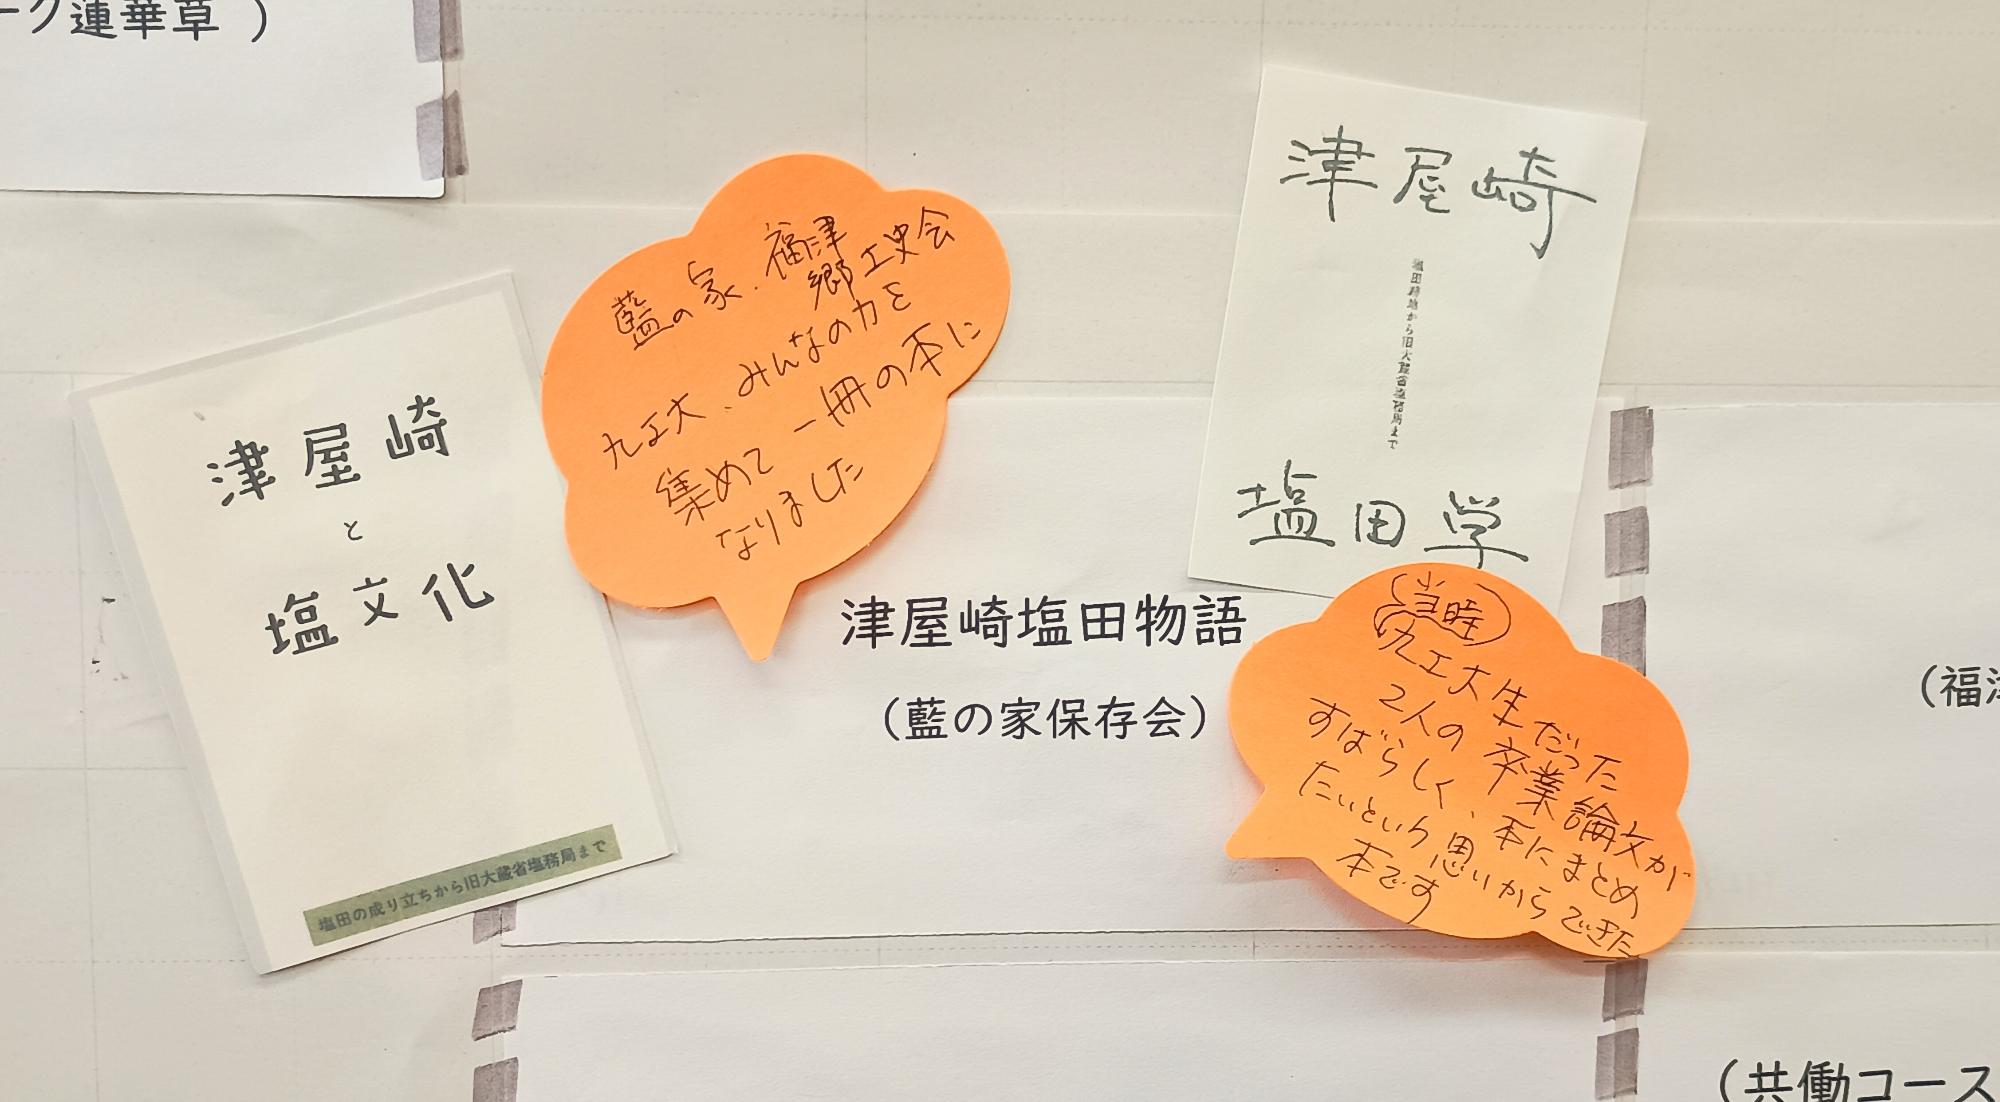 ーク蓮華草 )
津屋崎
と
塩文化
塩田の成り立ちから旧大蔵省塩務局まで
藍の家、福津
郷土史会
九工大、みんなの力を
集めて 一冊の本に
なりました
津屋崎
塩田跡地から旧大蔵省塩務局まで
塩田学
津屋崎塩田物語
（藍の家保存会）
当時
九工大生だった
2人の 卒業論文が
すばらしく、本にまとめ
たいという思いからできた
本です
（福津
（共働コース